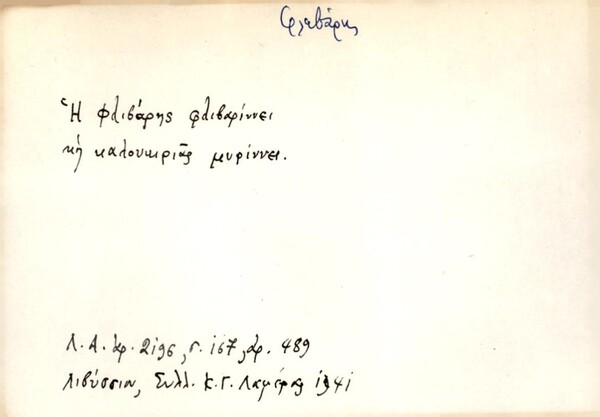 Φλεβάρης
Ἡ Φλιβάρης φλιβαρίννει
κὴ καλουκριᾶς μυρίννει.
Λ. Α. ἀρ. 2196, σ. 167, ἀρ. 489
Λιβύσσιν, Συλλ. Κ. Γ. Λαμέρας 1941